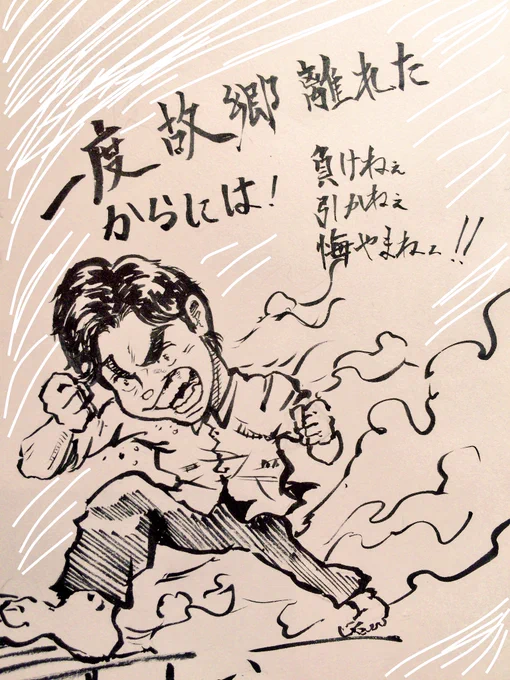 一度故郷離れた
からには!
負けねぇ
引かねぇ
悔やまねぇ!!